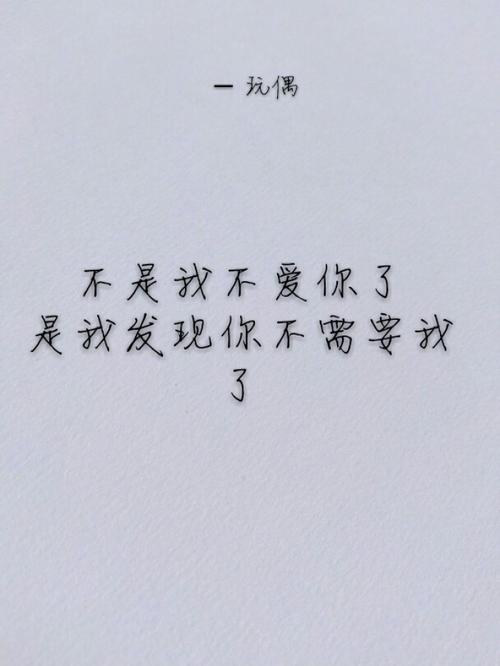 — 玩偶
不是我不爱你了
是我发现你不需要我
了